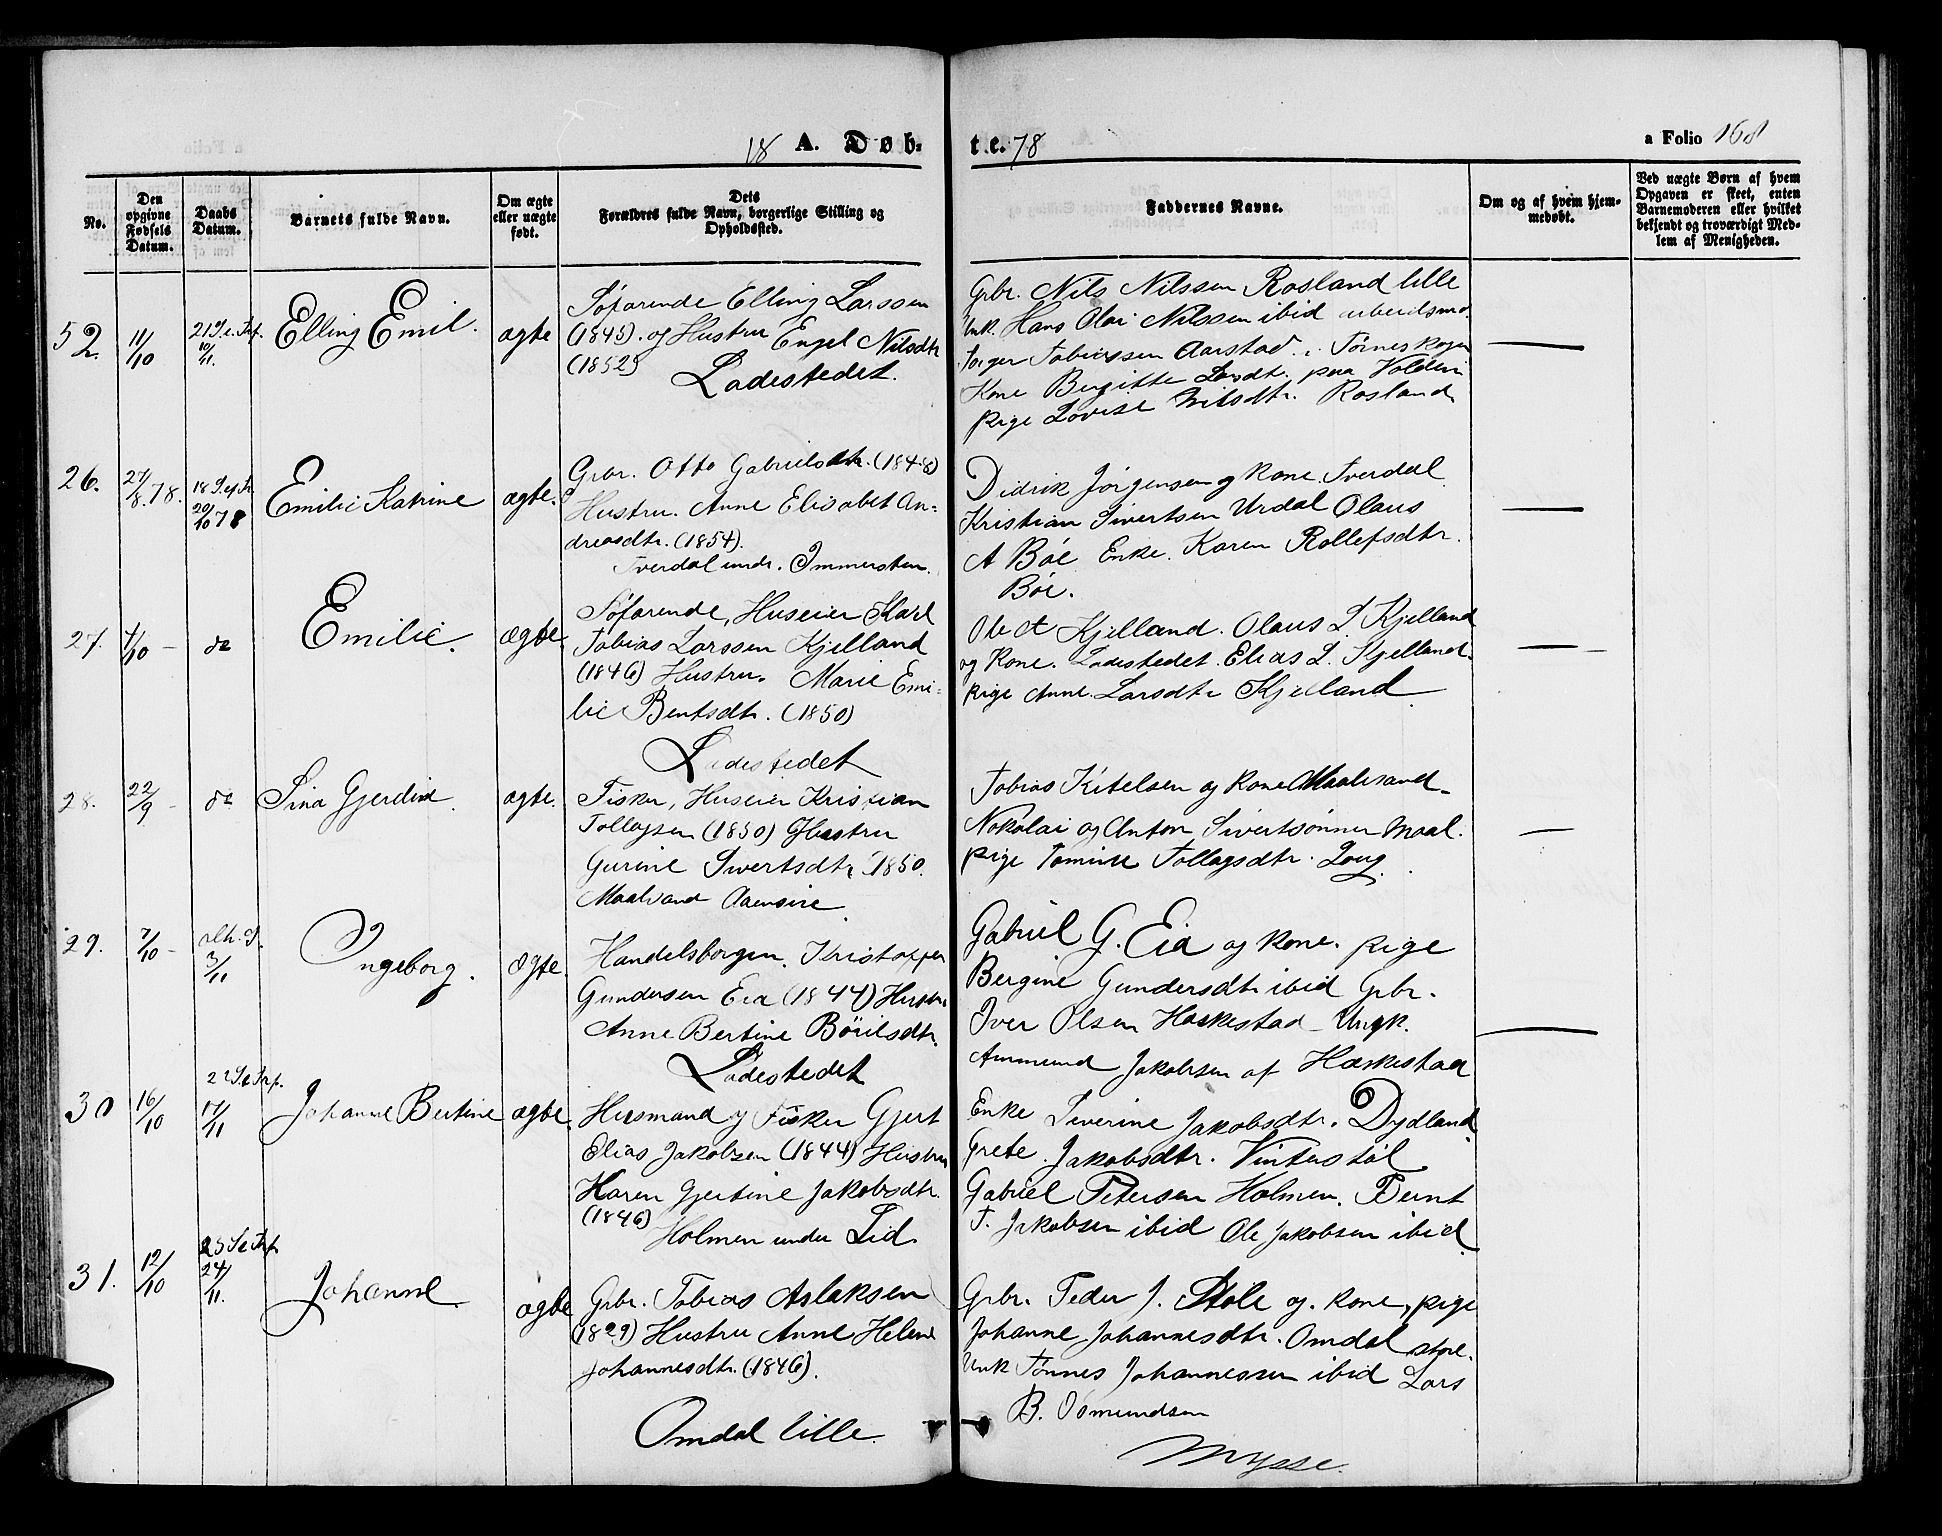 18 A. Døb-
te. 78
a Folio 168
No.
Den opgivne Fødsels Datum.
Daabs Datum.
Barnets fulde Navn.
Om ægte eller uægte født.
Dets Forældres fulde Navn, borgerlige Stilling og Opholdssted.
Faddernes Navne.
Om og af hvem hjemmedøbt.
Ved uægte Børn af hvem Opgaven er skeet, enten Barnemoderen eller hvilket bekjendt og troværdigt Medlem af Menigheden.
52. 11/10 21 S. e. Trf. 10/11. Elling Emil. ægte
Søfarende Elling Larssen
(1845). og Hustru Engel Nilsdtr
(1852)
Ladestedet.
Grbr. Nils Nilssen Rosland lille
Unk. Hans Olai Nilssen ibid arbeidsmd.
Torger Tobiassen Aarstad.
Kone Bergitte Larsdt. paa Volden
Pige Lovise Nilsdtr. Rosland
26. 27/8.78. 18 S. ef Tr. 20/10 78 Emilie Katrine ægte.
Grbr. Otto Gabrielsdtr. (1848)
Hustru. Anne Elisabet An-
dreasdtr. (1854).
Tverdal undr. Immersten.
Didrik Jørgensen og Kone Tverdal
Kristian Sivertsen Urdal Olaus
A Bøe Enke. Karen Rollefsdtr.
Bøe.
27. 4/10 - do Emilie. ægte.
Søfarende, Huseier Karl
Tobias Larssen Kjelland
(1846) Hustru. Marie Emi-
lie Bentsdtr. (1850)
Ladestedet
Ole A Kjelland. Olaus L. Kjelland
og Kone. Ladestedet. Elias L. Kjelland.
Pige Anne Larsdtr Kjelland
28. 22/9 - do Sina Gjerdine. ægte.
Fisker, Huseier Kristian
Tollagsen (1850) Hustru
Gurine Sivertsdtr 1850.
Maalvand Aaensire.
Tobias Kitelsen og Kone Maalvand.
Nokolai og Anton Sivertsønner Maal.
Pige Tomine Tollagsdtr. Log.
29. 7/10 - 3/11 Ingeborg. ægte.
Handelsborger. Kristoffer
Gundersen Eia (1844) Hustru
Anne Bertine Børilsdtr.
Ladestedet
Gabriel G. Eia og Kone. Pige
Bergine Gundersdtr ibid Grbr.
Iver Olsen Haskestad - Ungk.
Ammund Jakobsen af Hæskestad
30 16/10 22 S. e. Trf. 17/11 Johanne Bertine ægte.
Husmand og Fisker Gjert
Elias Jakobsen (1844) Hustru
Karen Gjertine Jakobsdtr.
(1846)
Holmen under Lid.
Enke Siverine Jakobsdtr. Dydland.
Grete Jakobsdtr. Vinterstøl
Gabriel Petersen Holmen. Bernt
T. Jakobsen ibid Ole Jakobsen ibid.
31. 12/10 23 S. e. Trf. 24/11. Johanne. ægte
Grbr. Tobias Aslaksen
(1829) Hustru Anne Helene
Johannesdtr. (1846).
Omdal lille.
Grbr. Peder J. Støle og Kone, Pige
Johanne Johannesdtr. Omdal store.
Unk Tønnes Johannessen ibid Lars
B. Osmundsen
Mysse.